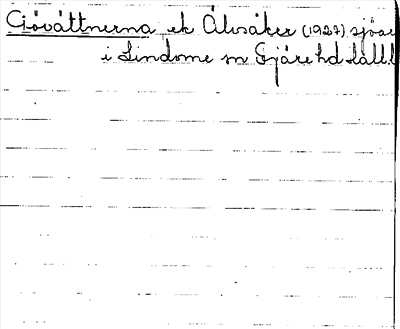 Gåvattnerna ek Älvsåker (1927) sjöar
i Lindome sn Fjäre hd Hall.l